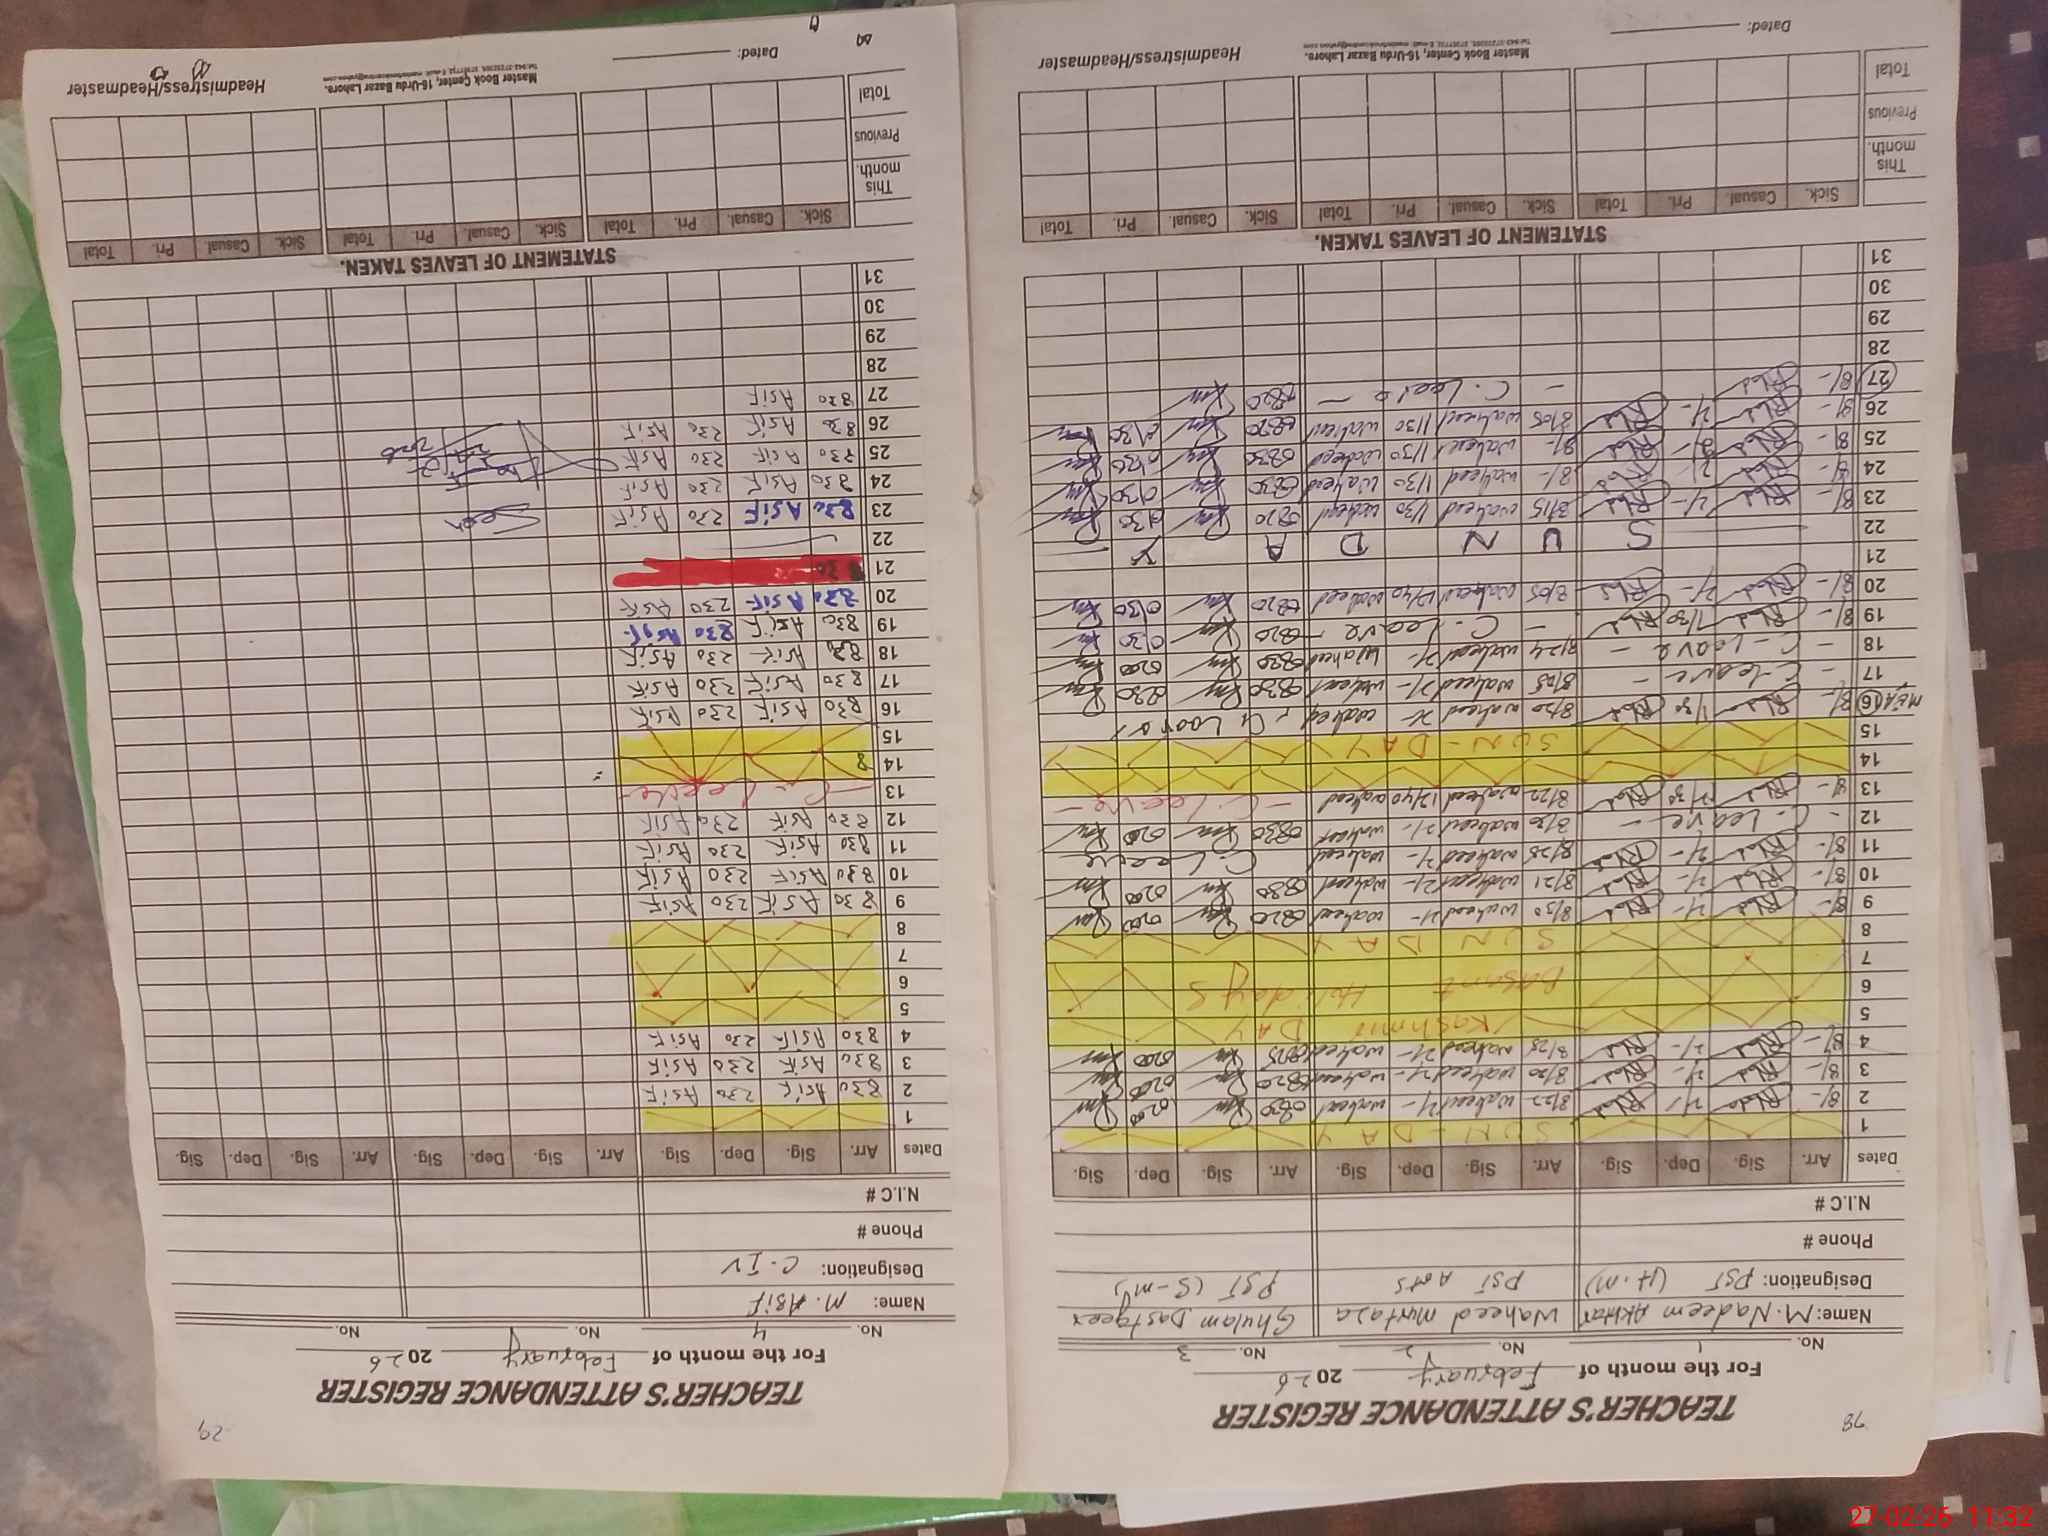 78
TEACHER'S ATTENDANCE REGISTER
For the month of February 2026
No. 1 No. 2 No. 3
Name: M. Nadeem Akhtar Waheed Murtaza Ghulam Dastgeer
Designation: PST (H.M) PST AMS PST (S-M)
Phone #
N.I.C #
Dates Arr. Sig. Dep. Sig. Arr. Sig. Dep. Sig. Arr. Sig. Dep. Sig.
1 SUN-DAY
2 8/- 2/- 8/22 waheed 2/- waheed 0830 0200
3 8/- 2/- 8/20 waheed 2/- waheed 0820 0200
4 8/- 2/- 8/25 waheed 2/- waheed 0825 0200
5 Kashmir DAY
6 Basant Holidays
7
8 SUNDAY
9 8/- 2/- 8/30 waheed 2/- waheed 0820 0200
10 8/- 2/- 8/21 waheed 2/- waheed 0830 0200
11 8/- 2/- 8/25 waheed 2/- waheed C. Leave
12 - C-Leave - 8/30 waheed 2/- waheed 0830 0200
13 8/- 8/22 waheed 12/40 waheed - C. Leave -
14
15 SUN-DAY
16 8/20 waheed waheed
17 - C-leave - 8/25 waheed 2/- waheed 0830 0230
18 - C-Leave - 8/24 waheed 2/- Waheed 0820 0200
19 8/- 1/30 - C. Leave - 0820 0130
20 8/- 8/05 waheed 12/40 waheed 0820 0130
21
22 S U N D A Y
23 8/- 2/- 8/15 waheed 1/30 waheed 0820 0130
24 8/- 2/- 8/- waheed 1/30 waheed 0830 0130
25 8/- 2/- 8/- waheed 1/30 waheed 0830 0130
26 8/- 2/- 8/05 waheed 1/30 waheed 0820 0130
27 8/- - C. Leave - 0820
28
29
30
31
STATEMENT OF LEAVES TAKEN.
Sick. Casual. Pri. Total Sick. Casual. Pri. Total Sick. Casual. Pri. Total
This month.
Previous
Total
Master Book Center, 16-Urdu Bazar Lahore.
Dated: Headmistress/Headmaster
29
TEACHER'S ATTENDANCE REGISTER
For the month of February 2026
No. 4 No. No.
Name: M. ASiF
Designation: C-IV
Phone #
N.I.C #
Dates Arr. Sig. Dep. Sig. Arr. Sig. Dep. Sig. Arr. Sig. Dep. Sig.
1
2 830 Asif 230 ASiF
3 830 ASiF 230 ASiF
4 830 ASiF 230 ASiF
5
6
7
8
9 830 ASiF 230 ASiF
10 830 ASiF 230 ASiF
11 830 ASiF 230 ASiF
12 830 ASiF 230 ASiF
13 - C- Leave -
14 8
15
16 830 ASiF 230 ASiF
17 830 ASiF 230 ASiF
18 830 ASiF 230 ASiF
19 830 ASiF 230 ASiF
20 830 ASiF 230 ASiF
21
22
23 830 ASiF 230 ASiF Seen
24 830 ASiF 230 ASiF
25 830 ASiF 230 ASiF
26 830 ASiF 230 ASiF
27 830 ASiF
28
29
30
31
STATEMENT OF LEAVES TAKEN.
Sick. Casual. Pri. Total Sick. Casual. Pri. Total Sick. Casual. Pri. Total
This month.
Previous
Total
Master Book Center, 16-Urdu Bazar Lahore.
Dated: Headmistress/Headmaster
27-02-26 11:32